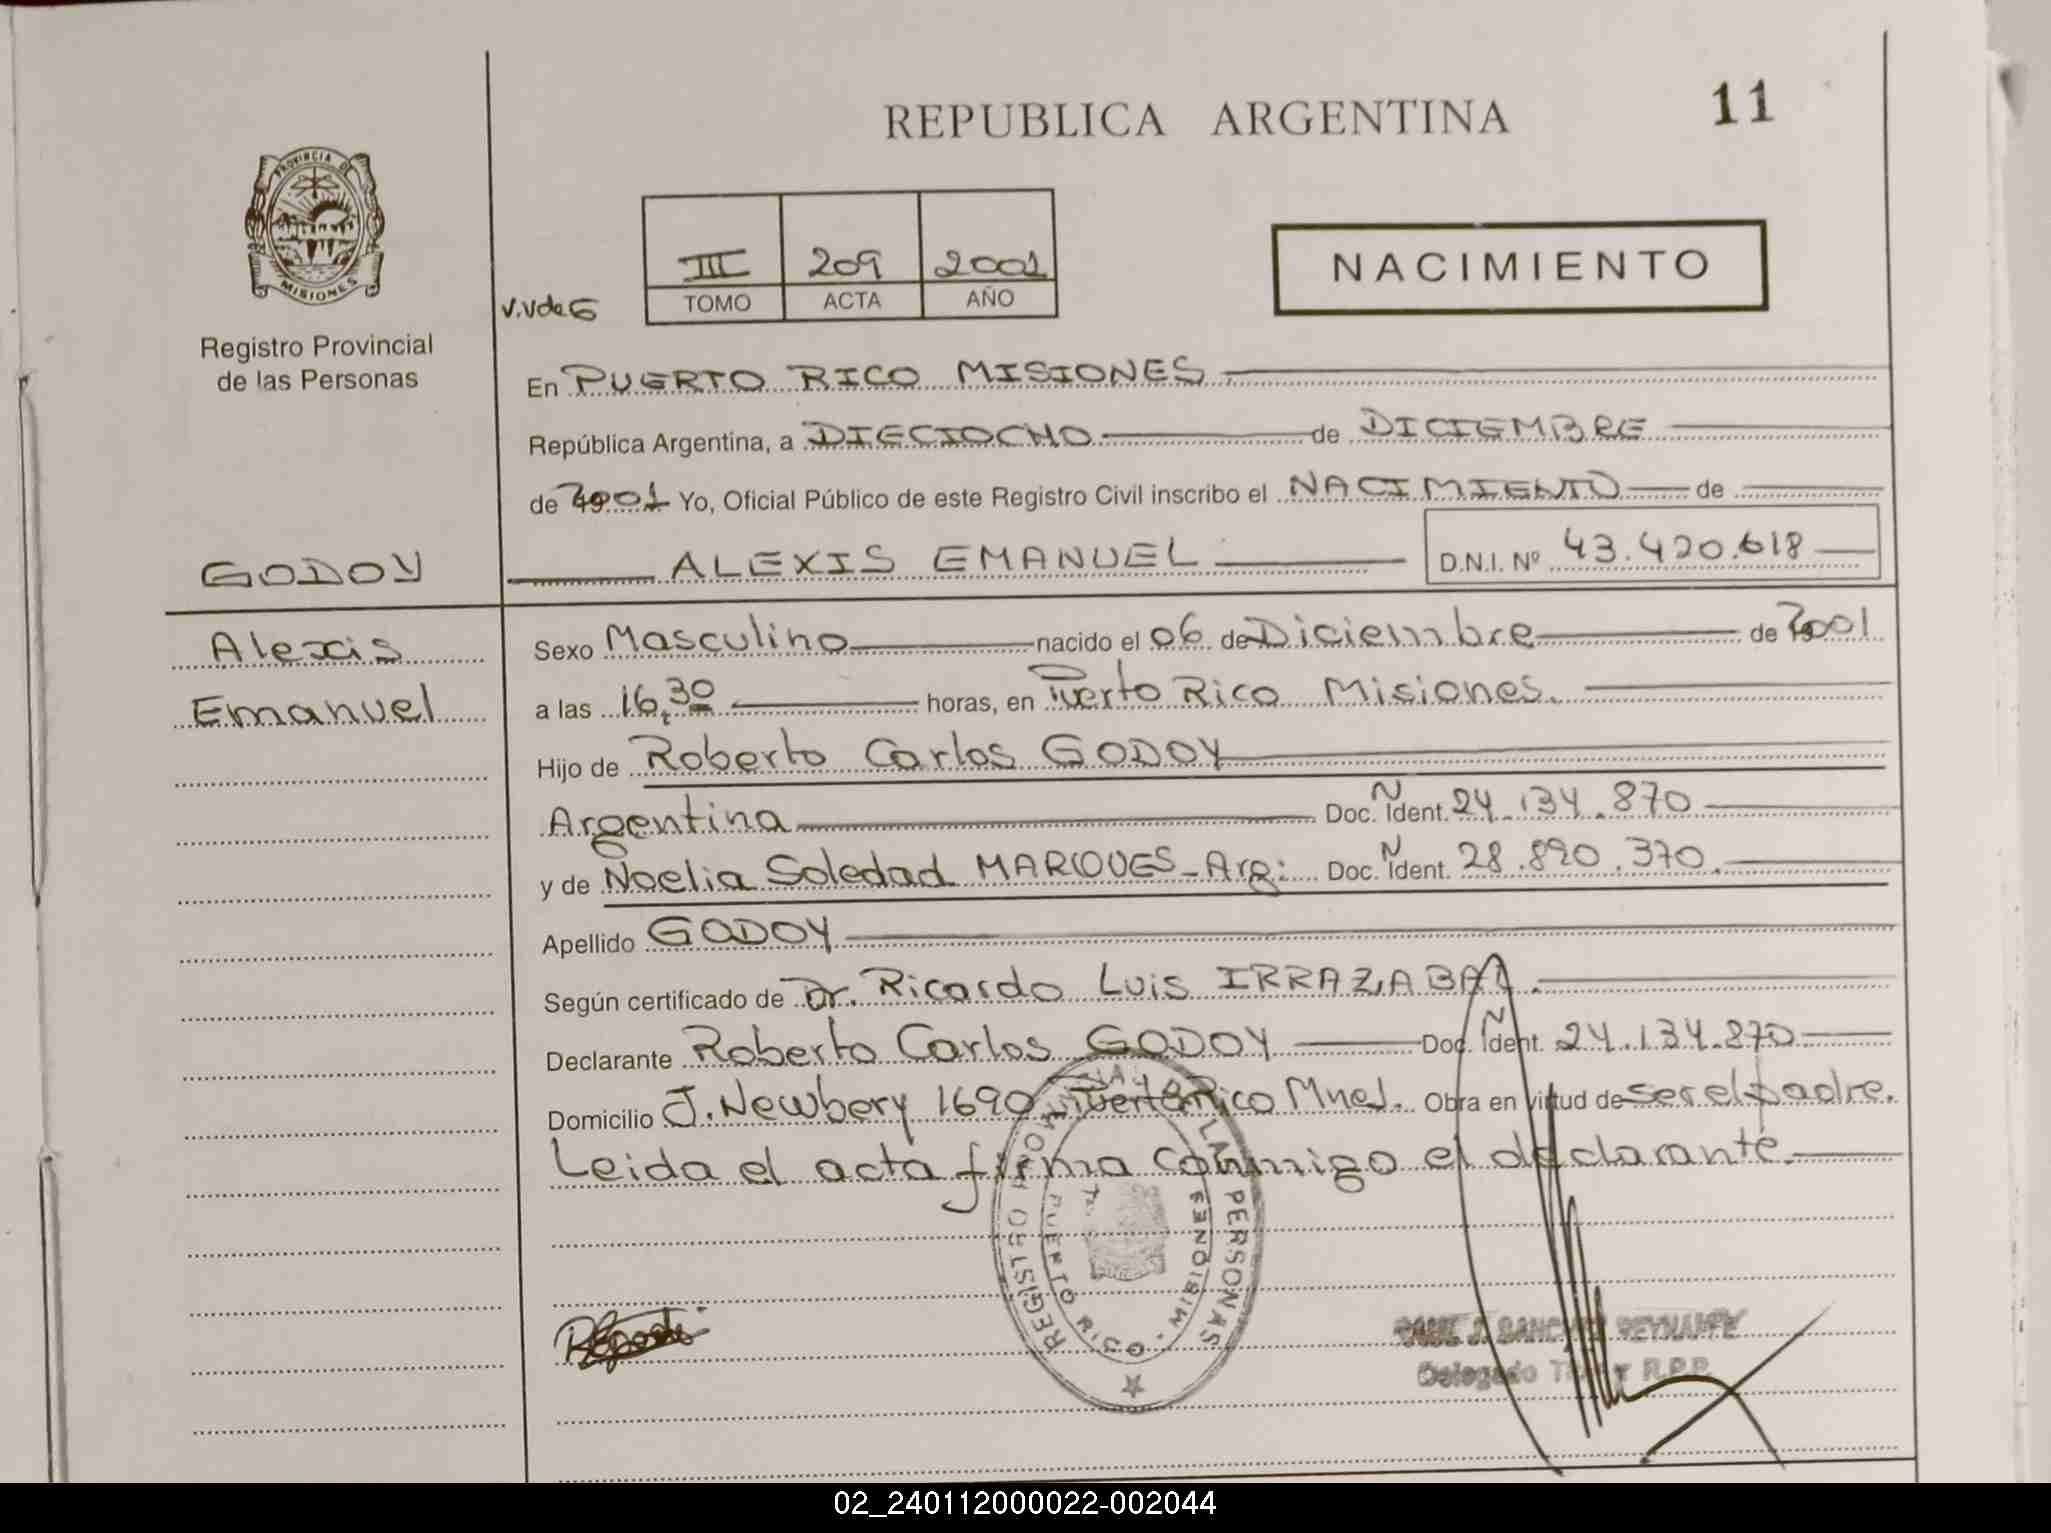 REPUBLICA ARGENTINA
11
PROVINCIA DE
MISIONES
Registro Provincial
de las Personas
V.V de G
III 209 2001
TOMO ACTA AÑO
NACIMIENTO
En PUERTO RICO MISIONES
República Argentina, a DIECIOCHO de DICIEMBRE
de 2001 Yo, Oficial Público de este Registro Civil inscribo el NACIMIENTO de
GODOY
ALEXIS EMANUEL D.N.I. Nº 43.420.618
Alexis
Sexo Masculino nacido el 06 de Diciembre de 2001
Emanuel
a las 16,30 horas, en Puerto Rico Misiones.
Hijo de Roberto Carlos GODOY
Argentina Doc. Ñ Ident. 24.134.870
y de Noelia Soledad MARQUES - Arg: Doc. N Ident. 28.890.370.
Apellido GODOY
Según certificado de Dr. Ricardo Luis IRRAZABAL.
Declarante Roberto Carlos GODOY Doc. Ñ Ident. 24.134.870
Domicilio J. Newbery 1690 Puerto Rico Mnes. Obra en virtud de ser el padre.
Leida el acta firma conmigo el declarante.
REGISTRO LAS PERSONAS
PUERTO RICO - MISIONES
Delegado R.P.P.
02_240112000022-002044